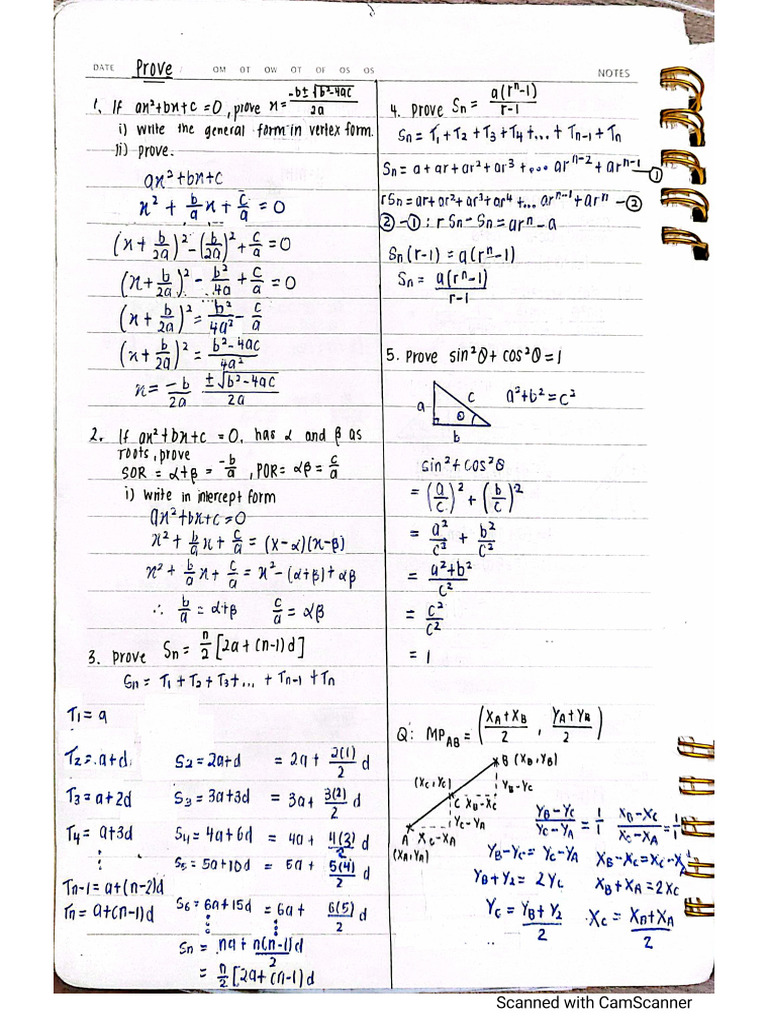 DATE Prove OM OT OW OT OF OS OS NOTES
1. If ax²+bx+c=0, prove x = -b±√b²-4ac / 2a
i) write the general form in vertex form.
ii) prove.
ax²+bx+c
x² + b/a x + c/a = 0
(x + b/2a)² - (b/2a)² + c/a = 0
(x + b/2a)² - b²/4a + c/a = 0
(x + b/2a)² = b²/4a² - c/a
(x + b/2a)² = b²-4ac / 4a²
x = -b/2a ±√b²-4ac / 2a
2. If ax²+bx+c = 0, has α and β as
roots, prove
SOR = α+β = -b/a, POR = αβ = c/a
i) write in intercept form
ax²+bx+c=0
x² + b/a x + c/a = (x-α)(x-β)
x² + b/a x + c/a = x² - (α+β) + αβ
∴ b/a = α+β c/a = αβ
3. Prove Sn = n/2 [2a+(n-1)d]
Sn = T1 + T2 + T3 + ... + Tn-1 + Tn
T1 = a
T2 = a+d S2 = 2a+d = 2a + 2(1)/2 d
T3 = a+2d S3 = 3a+3d = 3a + 3(2)/2 d
T4 = a+3d S4 = 4a+6d = 4a + 4(3)/2 d
⋮ S5 = 5a+10d = 5a + 5(4)/2 d
Tn-1 = a+(n-2)d
Tn = a+(n-1)d S6 = 6a+15d = 6a + 6(5)/2 d
Sn = na + n(n-1)d / 2
= n/2 [2a+(n-1)d
4. Prove Sn = a(rⁿ-1) / r-1
Sn = T1 + T2 + T3 + T4 + ... + Tn-1 + Tn
Sn = a + ar + ar² + ar³ + ... arⁿ⁻² + arⁿ⁻¹ — ①
rSn = ar + ar² + ar³ + ar⁴ + ... arⁿ⁻¹ + arⁿ — ②
② - ① : rSn - Sn = arⁿ - a
Sn(r-1) = a(rⁿ-1)
Sn = a(rⁿ-1) / r-1
5. Prove sin²θ + cos²θ = 1
a c θ b a²+b² = c²
sin² + cos²θ
= (a/c)² + (b/c)²
= a²/c² + b²/c²
= a²+b² / c²
= c²/c²
= 1
Q: MP AB = (XA+XB / 2 , YA+YB / 2)
B (XB, YB)
(XC, YC) YB-YC
C XB-XC
YC-YA
A XC-XA
(XA, YA)
YB-YC / YC-YA = 1/1 XB-XC / XC-XA = 1/1
YB-YC = YC-YA XB-XC = XC-XA
YB+Y2 = 2YC XB+XA = 2XC
YC = YB+Y2 / 2 XC = XB+XA / 2
Scanned with CamScanner